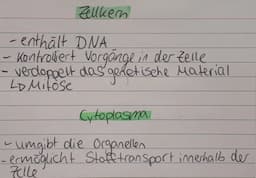 Zellkern
- enthält DNA
- kontrolliert Vorgänge in der Zelle
- verdoppelt das genetische Material
↳ Mitose
Cytoplasma
- umgibt die Organellen
- ermöglicht Stofftransport innerhalb der
Zelle